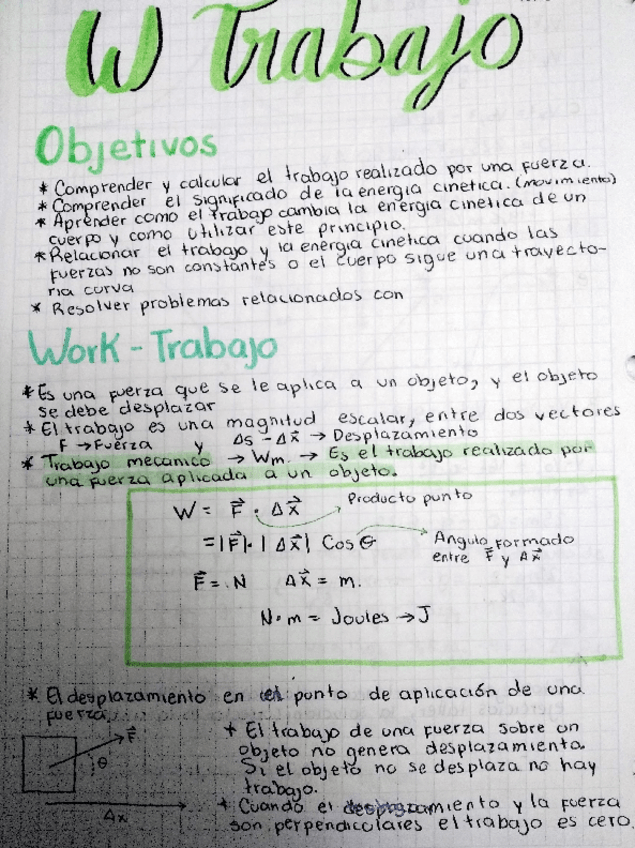 W Trabajo
Objetivos
* Comprender y calcular el trabajo realizado por una fuerza.
* Comprender el significado de la energia cinetica. (movimiento)
* Aprender como el trabajo cambia la energia cinetica de un
cuerpo y como utilizar este principio.
* Relacionar el trabajo y la energia cinetica cuando las
fuerzas no son constantes o el cuerpo sigue una trayecto-
ria curva
* Resolver problemas relacionados con
Work - Trabajo
* Es una fuerza que se le aplica a un objeto, y el objeto
se debe desplazar
* El trabajo es una magnitud escalar, entre dos vectores
F → Fuerza y Δs - Δx⃗ → Desplazamiento
* Trabajo mecanico → Wm. → Es el trabajo realizado por
una fuerza aplicada a un objeto.
W = F⃗ · Δx⃗ Producto punto
= |F⃗| · |Δx⃗| Cos θ Angulo formado
entre F⃗ y Δx⃗
F⃗ = . N Δx⃗ = m.
N · m = Joules → J
* El desplazamiento en el punto de aplicación de una
fuerza,
F⃗
θ
Δx
* El trabajo de una fuerza sobre un
objeto no genera desplazamiento.
Si el objeto no se desplaza no hay
trabajo.
* Cuando el desplazamiento y la fuerza
son perpendiculares el trabajo es cero.